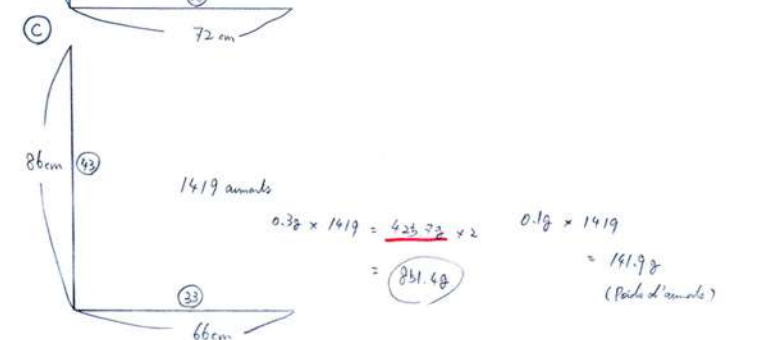 72 cm
C
86cm
43
1419 aimants
0.3g × 1419 = 425.7g × 2
= 851.4g
0.1g × 1419
= 141.9g
(Poids d'aimants)
33
66cm